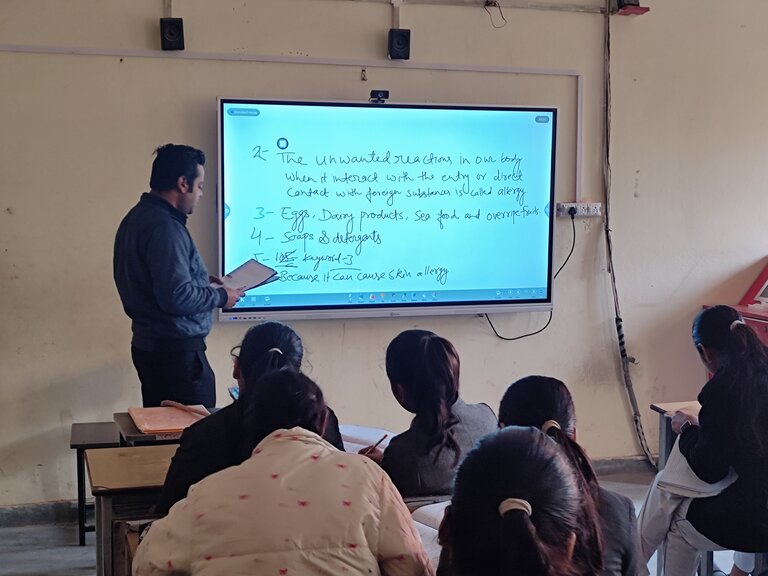 2- The unwanted reactions in our body
when it interact with the entry or direct
contact with foreign substances is called allergy
3- Eggs, Dairy products, Sea food and overripe fruits
4- Soaps & detergents
5- Keyword-3
Because it can cause skin allergy